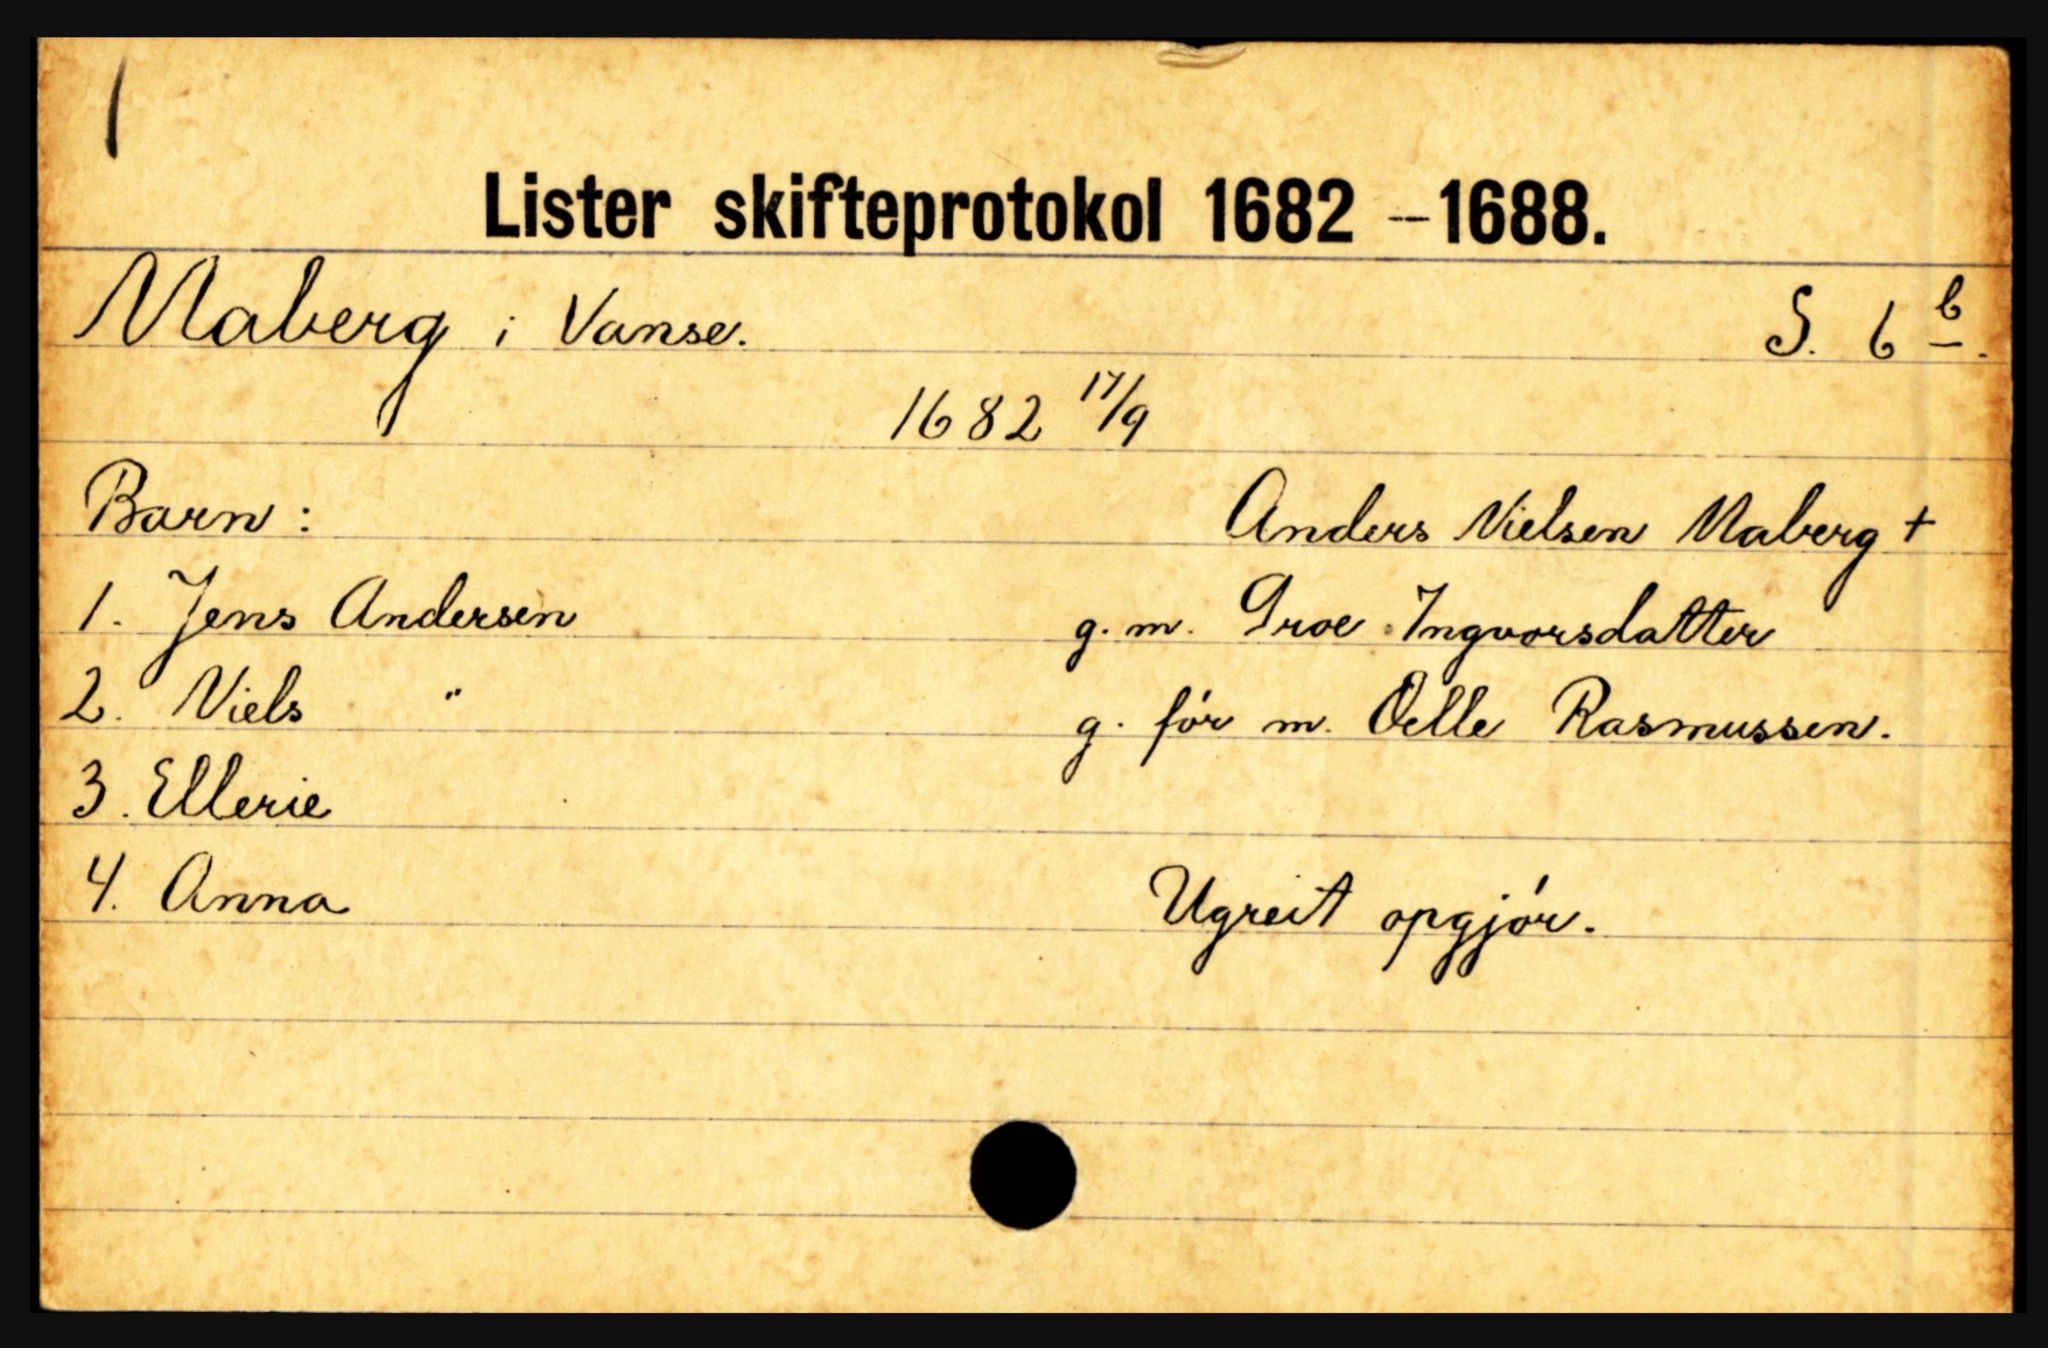 Lister skifteprotokol 1682 - 1688.
Maberg i Vanse. S. 6 b.
1682 17/9
Barn: Anders Nielsen Maberg +
1. Jens Andersen g. m. Groe Ingvorsdatter
2. Niels " g. før m. Oelle Rasmussen.
3. Ellerie
4. Anna Ugreit opgjør.